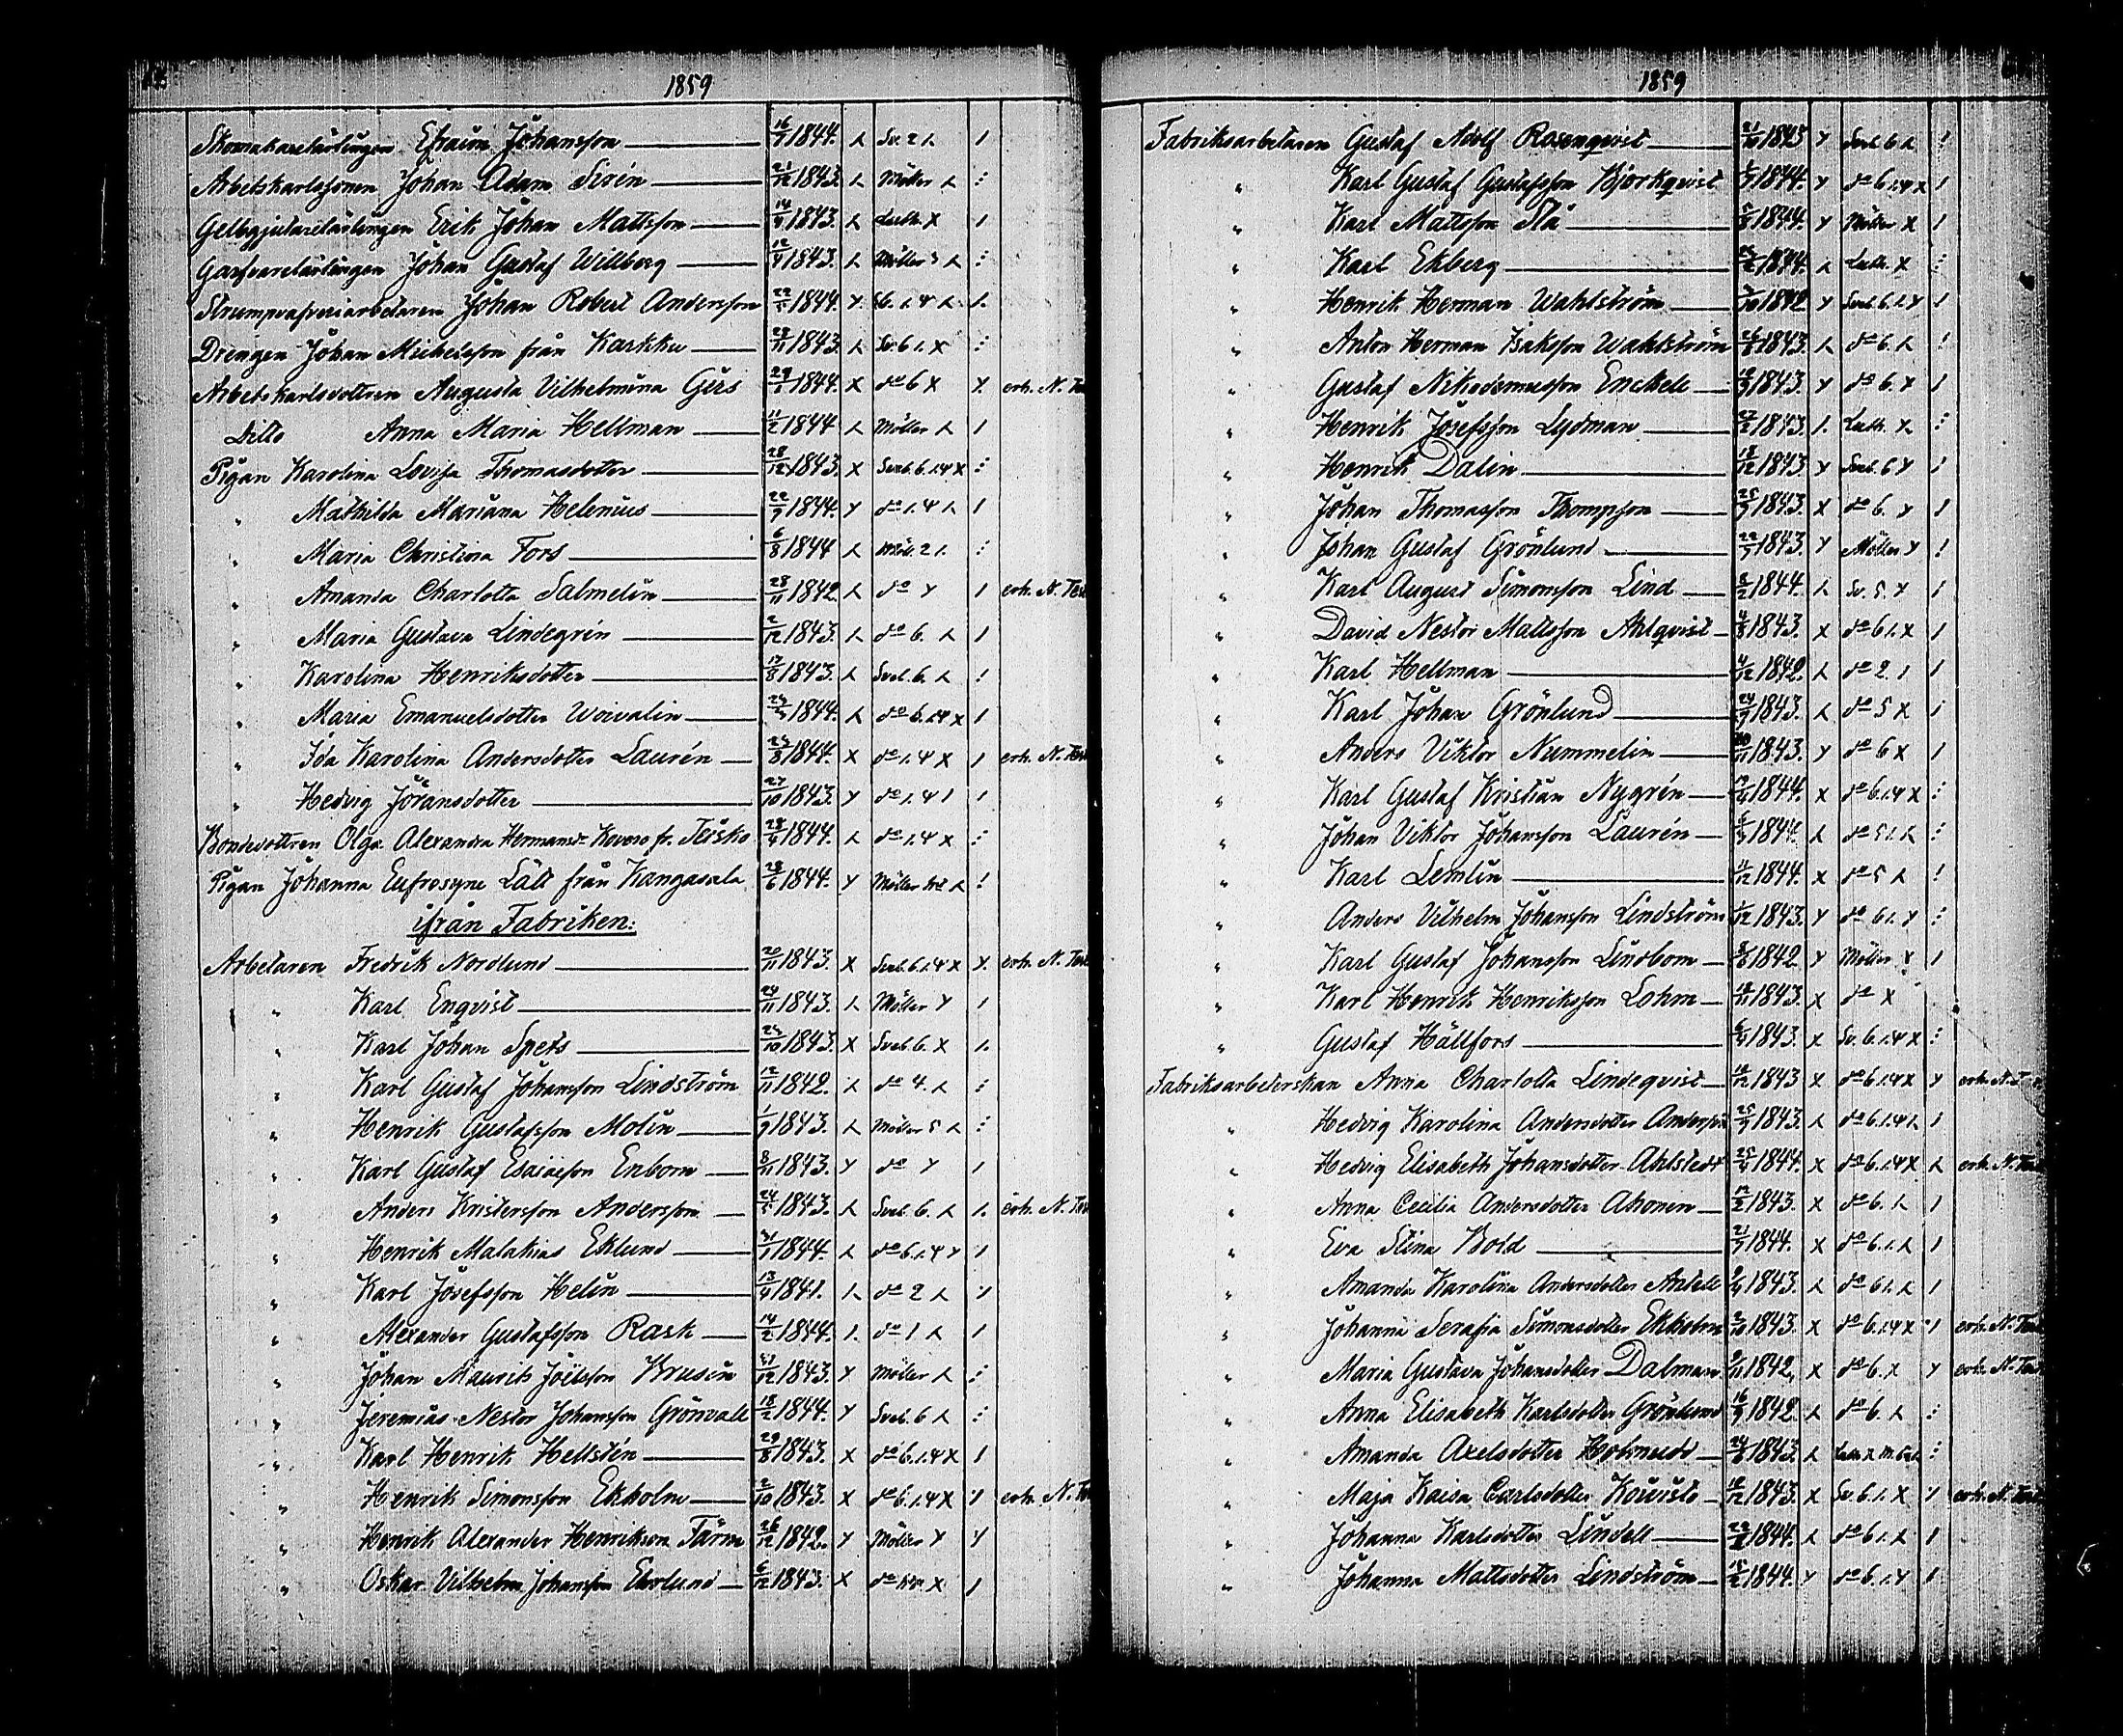 1859
Skomakarelärlingen Efraim Johansson 16/7 1844. Sv. 2 1.
Arbetskarlssonen Johan Adam Sirén 21/12 1843. Möller
Gelbgjutarelärlingen Erik Johan Mattsson 14/9 1843. Luth. X
Garfvarelärlingen Johan Gustaf Willberg 12/9 1843. Möller
Strumpväfveriarbetaren Johan Robert Andersson 1844. 6. 1.4
Drengen Johan Michelsson från Karkku 23/11 1843. Sv. 6 1. X
Arbetskarlsdottren Augusta Vilhelmina Girs 1844. X do 6 X erh. N. Te
Ditto Anna Maria Hellman 11/2 1844 Möller
Pigan Karolina Lovisa Thomasdotter 28/12 1843. X Sveb. 6. 1.4 X
" Mathilda Mariana Helenius 22/7 1844. do 1.4
" Maria Christina Fors 6/8 1844 Möll. 2 1.
" Amanda Charlotta Salmelin 28/11 1842 do erh. N. Tes
" Maria Gustava Lindegrén 2/12 1843. do 6.
" Karolina Henriksdotter 17/8 1843. Sveb. 6.
" Maria Emanuelsdotter Woivalin 1844. do 6. 1.4 X
" Ida Karolina Andersdotter Laurén 1844. X do 1.4 X erh. N. Test
" Hedvig Jöransdotter 27/10 1843. do 1.4 1
Bondedottren Olga Alexandra Hermansdr Kovero fr. Teisko 28/4 1844. do 1.4 X
Pigan Johanna Eufrosyne Lätt från Kangasala 28/6 1844. Möller
ifrån Fabriken:
Arbetaren Fredrik Nordlund 20/11 1843. X Sveb. 6. 1.4 X erh. N. Test
" Karl Enqvist 24/11 1843. Möller
" Karl Johan Spets 25/10 1843. X Sveb. 6. X
" Karl Gustaf Johansson Lindström 12/11 1842. do 4.
" Henrik Gustafsson Molin 1/9 1843. Möller 5
" Karl Gustaf Esaiasson Enbom 8/11 1843. do
" Anders Kristersson Andersson 1843. Sveb. 6. erh. N. Tes
" Henrik Malakias Eklund 31/1 1844. do 6. 1.4
" Karl Josefsson Helin 13/4 1841. do 2
" Alexander Gustafsson Rask 14/2 1844. do 1
" Johan Maurits Joelsson Krusen 1843. Möller
" Jeremias Nestor Johansson Grönvall 18/2 1844. Sveb. 6
" Karl Henrik Hellstén 29/8 1843. X do 6. 1.4 X
" Henrik Simonsson Ekholm 2/10 1843. X do 6. 1.4 X erh. N. Te
" Henrik Alexander Henriksson Färm 26/12 1842. Möller
" Oskar Vilhelm Johansson Ehrlund 6/12 1843. X do X
1859
Fabriksarbetaren Gustaf Adolf Rosenqvist 21/10 1843 Sveb. 6
" Karl Gustaf Gustafsson Björkqvist 1844. do 6 1.4 X
" Karl Mattsson Slå 5/8 1844. Möller X
" Karl Ekberg 1844. Luth. X
" Henrik Herman Wahlström 1842 Sveb. 6. 1.
" Anton Herman Isaksson Wahlström 1843. do 6.
" Gustaf Nikodemusson Enckell 1843. do 6.
" Henrik Josefsson Lydman 1843. Luth.
" Henrik Dalin 18/12 1843 Sveb. 6
" Johan Thomasson Thompson 1843. X do 6.
" Johan Gustaf Grönlund 1843. Möller
" Karl August Simonsson Lind 8/2 1844. Sv. 5.
" David Nestor Mattsson Ahlqvist 4/8 1843. X do 6 1. X
" Karl Hellman 4/12 1842. do 2. 1
" Karl Johan Grönlund 1843. do 5 X
" Anders Viktor Nummelin 1843. do 6 X
" Karl Gustaf Kristian Nygrén 1844. X do 6. 1.4 X
" Johan Viktor Johansson Laurén 1844. do 5 1.
" Karl Lemlin 11/12 1844. X do 5
" Anders Vilhelm Johansson Lindström 1/12 1843. do 6 1.
" Karl Gustaf Johansson Lindbom 1842 Möller
" Karl Henrik Henriksson Lohm 18/11 1843. X do X
" Gustaf Hällfors 1843. X Sv. 6. 1.4 X
Fabriksarbeterskan Anna Charlotta Lindeqvist 18/12 1843 X do 6. 1.4 X erh. N. T
" Hedvig Karolina Andersdotter 1843. do 6. 1.4
" Hedvig Elisabeth Johansdotter Ahlstedt 1844. X do 6. 1.4 X erh. N. Test
" Anna Cecilia Andersdotter Ahonen 1843. X do 6.
" Eva Stina Bold 21/7 1844. X do 6. 1.
" Amanda Karolina Andersdotter Antell 1843. do 6 1.
" Johanna Serafia Simonsdotter Ekholm 2/10 1843. X do 6. 1.4 X erh. N. Test
" Maria Gustava Johansdotter Dalman 9/11 1842. X do 6. X erh. N. Test
" Anna Elisabeth Karlsdotter Grönlund 16/9 1842 do 6.
" Amanda Axelsdotter 1843
" Maja Kaisa Carlsdotter Kouvisto 18/12 1843. X Sv. 6. 1. X erh. N. Test
" Johanna Karlsdotter Lindell 1844. do 6 1.
" Johanna Mattsdotter Lindström 15/2 1844. do 6. 1.